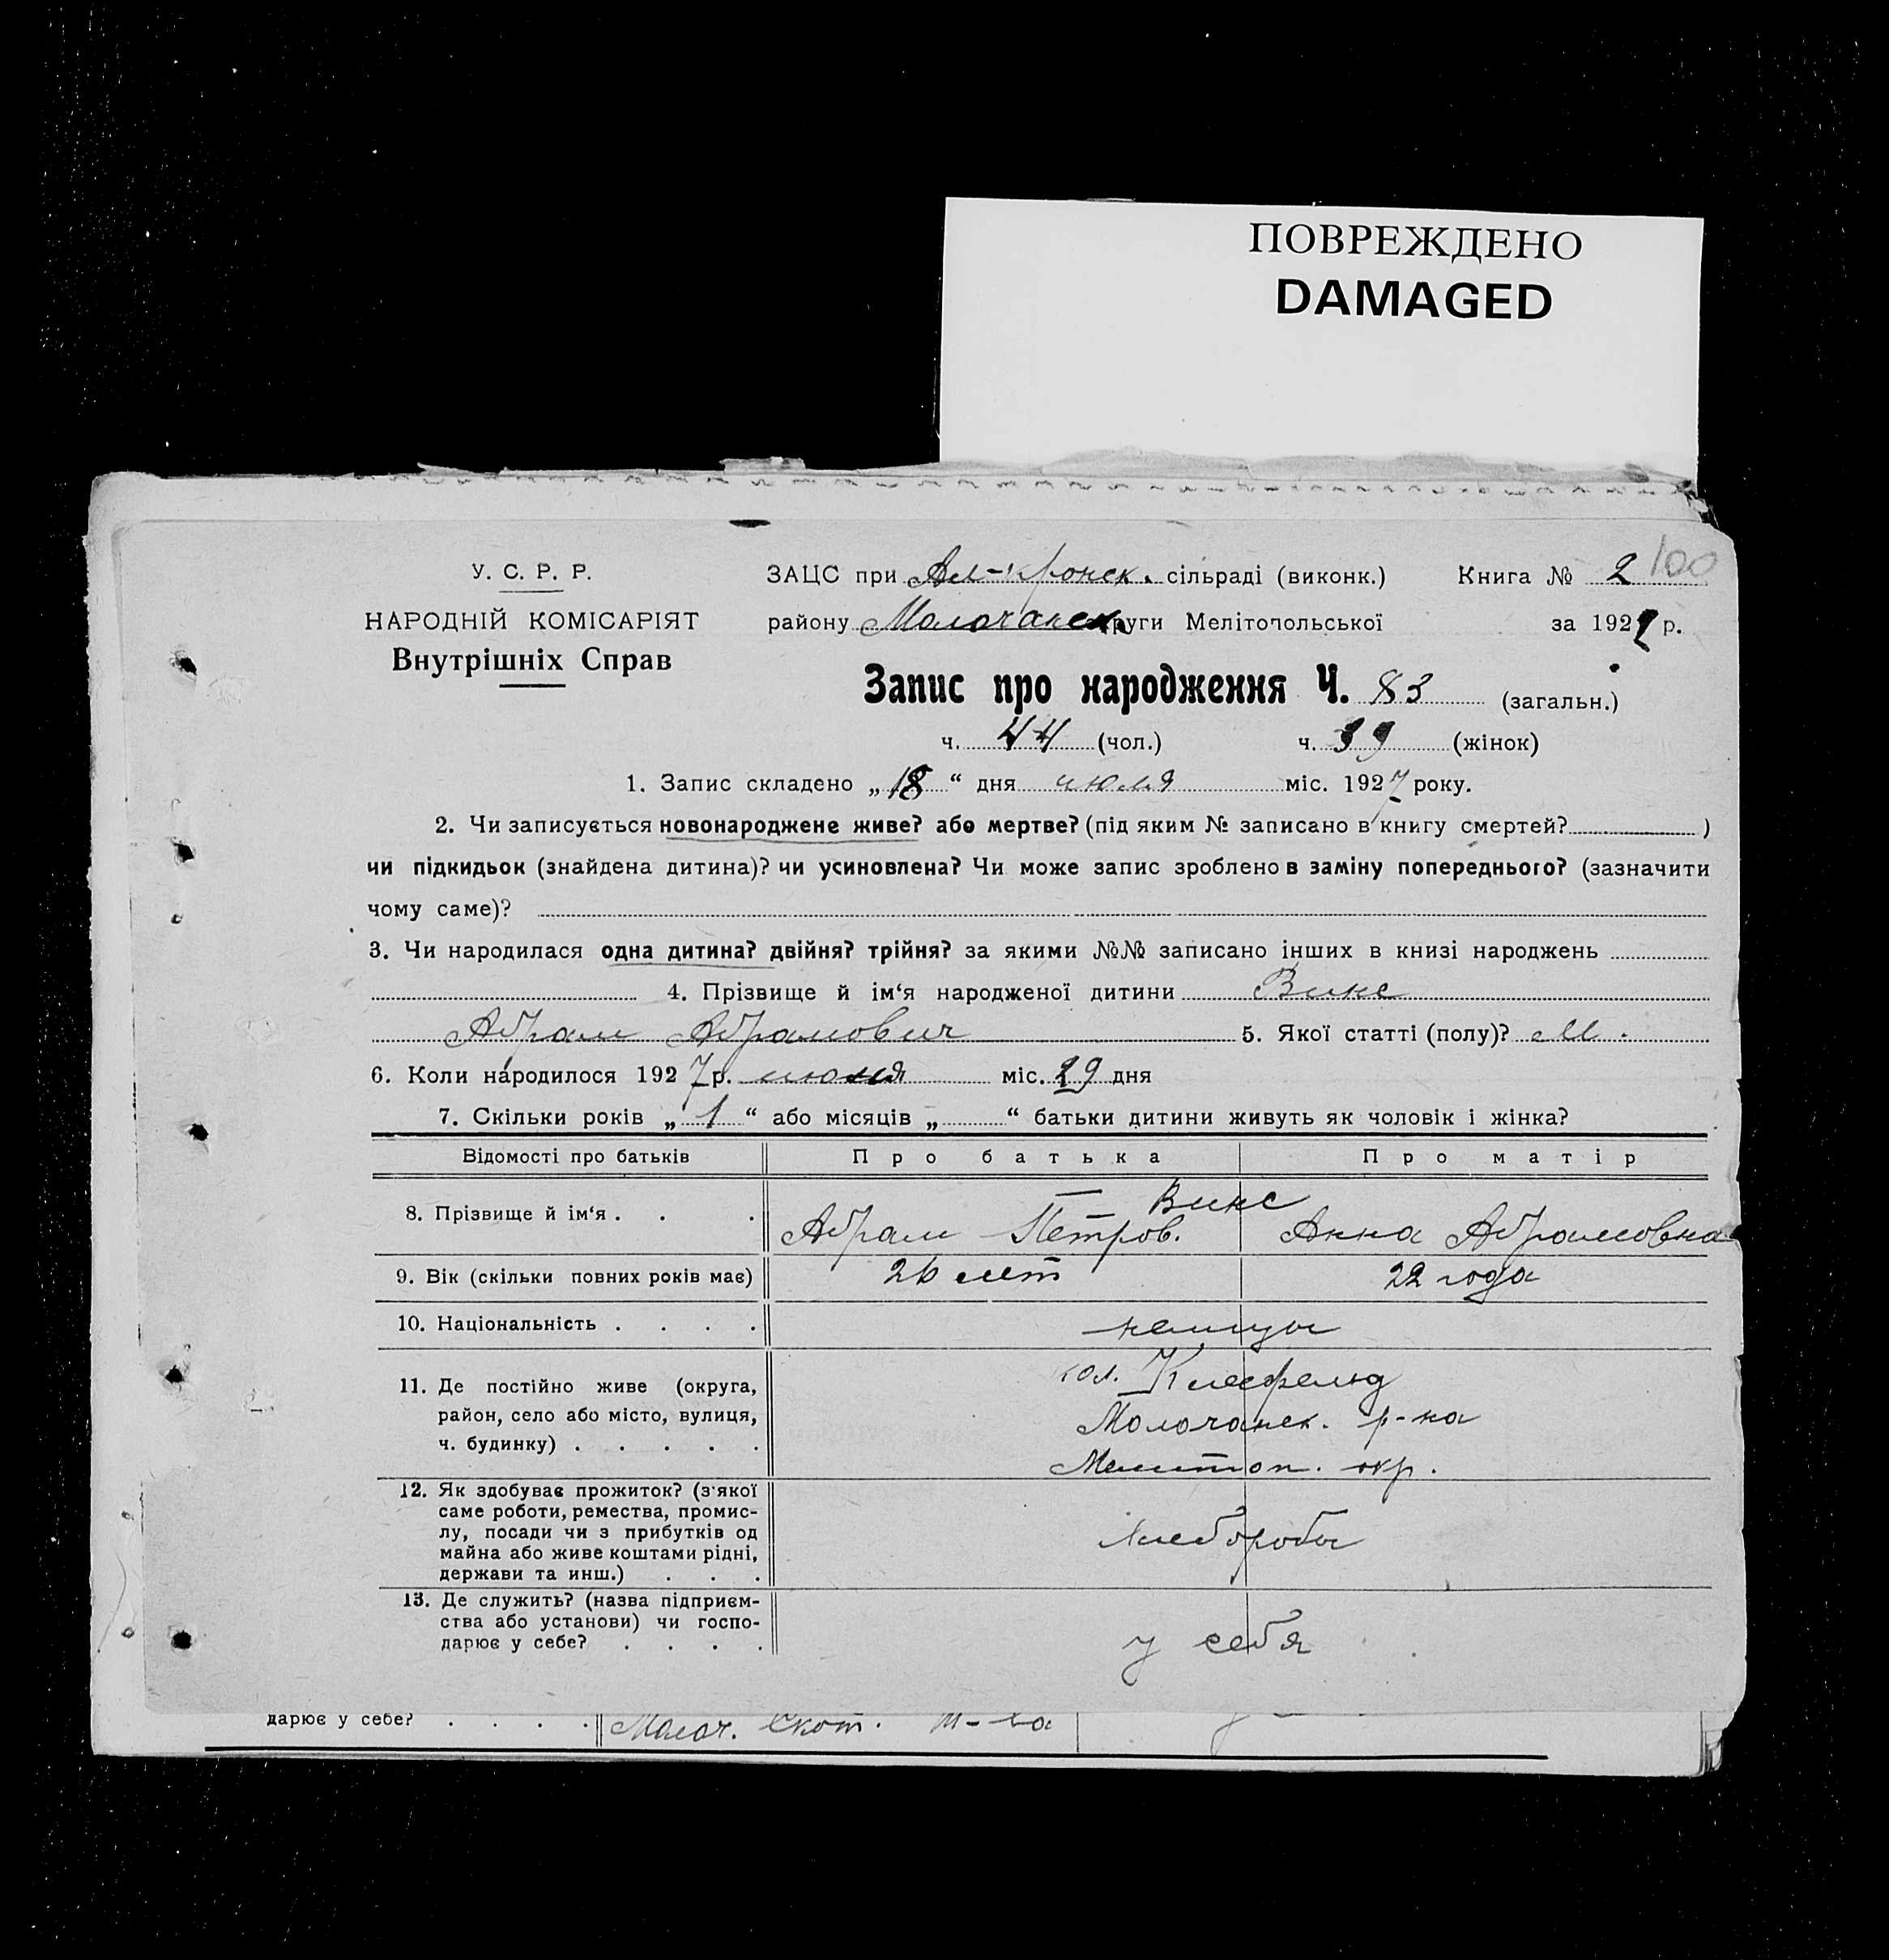 ПОВРЕЖДЕНО
DAMAGED
У. С. Р. Р.
НАРОДНІЙ КОМІСАРІЯТ
Внутрішніх Справ
ЗАЦС при Ал-кронск. сільраді (виконк.) Книга № 2 100
району Молочанск округи Мелітопольської за 1927 р.
Запис про народження Ч. 83 (загальн.)
ч. 44 (чол.) ч. 39 (жінок)
1. Запис складено „18“ дня июля міс. 1927 року.
2. Чи записується новонароджене живе? або мертве? (під яким № записано в книгу смертей? )
чи підкидьок (знайдена дитина)? чи усиновлена? Чи може запис зроблено в заміну попереднього? (зазначити
чому саме)?
3. Чи народилася одна дитина? двійня? трійня? за якими №№ записано інших в книзі народжень
4. Прізвище й ім‘я народженої дитини Винс
Абрам Абрамович 5. Якої статті (полу)? М.
6. Коли народилося 1927 р. июня міс. 29 дня
7. Скільки років „1“ або місяців „ “ батьки дитини живуть як чоловік і жінка?
Відомості про батьків Про батька Про матір
8. Прізвище й ім‘я . . . Винс
Абрам Петров. Анна Абрамовна
9. Вік (скільки повних років має) 26 лет 22 года
10. Національність . . . . немцы
11. Де постійно живе (округа, район, село або місто, вулиця, ч. будинку) . . . . . кол. Клеефельд
Молочанск. р-на
Мелитоп. окр.
12. Як здобуває прожиток? (з'якої
саме роботи, ремества, промис-
лу, посади чи з прибутків од
майна або живе коштами рідні,
держави та инш.) . . . хлеборобы
13. Де служить? (назва підприєм-
ства або установи) чи госпо-
дарює у себе? . . . . у себя
дарює у себе? . . . . Молоч. Скот. т-ва